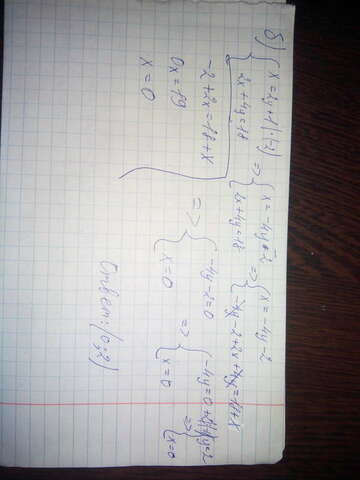 б) { x = 2y + 1 | · (-2)
2x + 4y = 18
=> { x = -4y - 2
+ 4y = 18
=> { x = -4y - 2
-2 + 2x = 18 + x
0x = 19
x = 0
=> { -4y - 2 = 0
x = 0
=> { -4y = 0 + 2
x = 0
=> { y = 2
x = 0
Ответ: (0; 2)